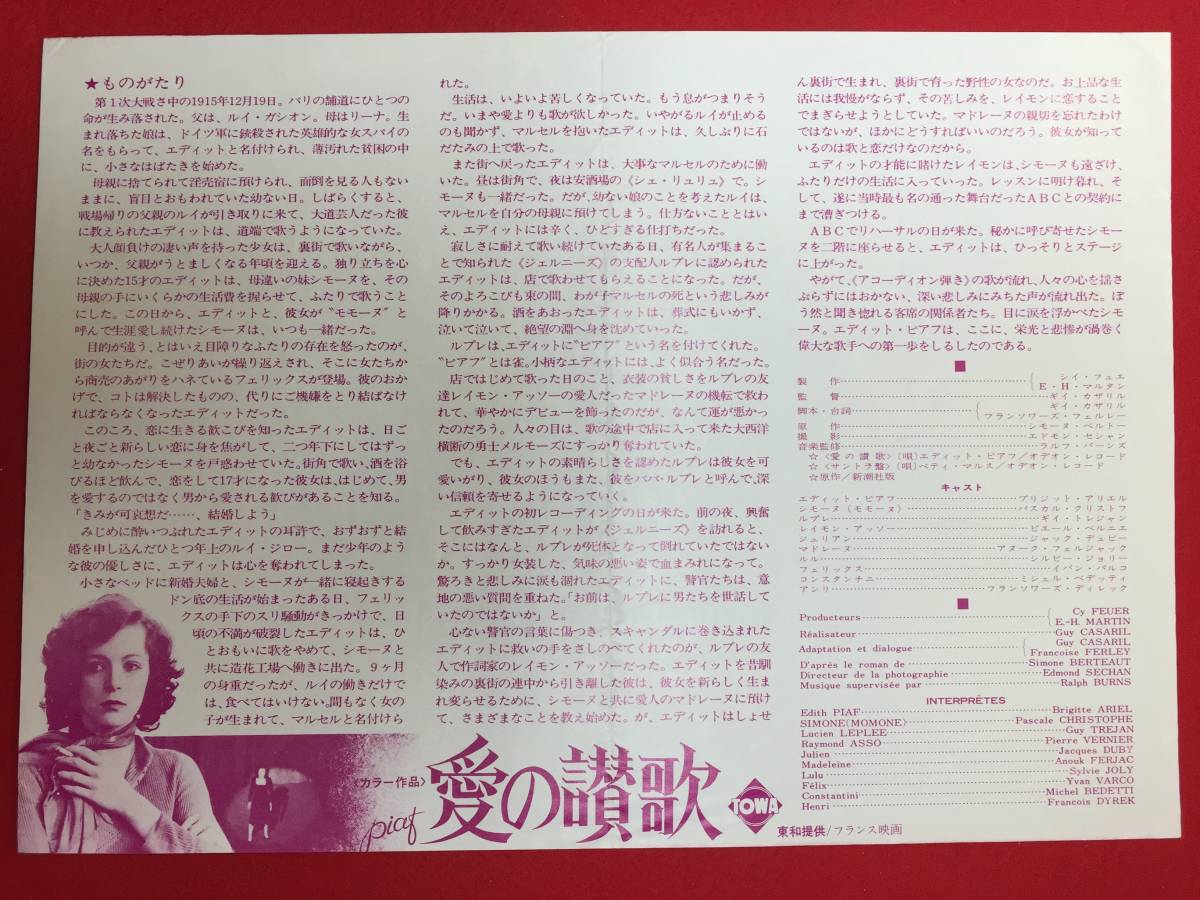 ★ものがたり
第1次大戦さ中の1915年12月19日。パリの舗道にひとつの
命が生み落された。父は、ルイ・ガシオン。母はリーナ。生
まれ落ちた娘は、ドイツ軍に銃殺された英雄的な女スパイの
名をもらって、エディットと名付けられ、薄汚れた貧困の中
に、小さなはばたきを始めた。
母親に捨てられて淫売宿に預けられ、面倒を見る人もない
ままに、盲目とおもわれていた幼ない日。しばらくすると、
戦場帰りの父親のルイが引き取りに来て、大道芸人だった彼
に教えられたエディットは、道端で歌うようになっていた。
大人顔負けの凄い声を持った少女は、裏街で歌いながら、
いつか、父親がうとましくなる年頃を迎える。独り立ちを心
に決めた15才のエディットは、母違いの妹シモーヌを、その
母親の手にいくらかの生活費を握らせて、ふたりで歌うこと
にした。この日から、エディットと、彼女が〝モモーヌ〟と
呼んで生涯愛し続けたシモーヌは、いつも一緒だった。
目的が違う、とはいえ目障りなふたりの存在を怒ったのが、
街の女たちだ。こぜりあいが繰り返えされ、そこに女たちか
ら商売のあがりをハネているフェリックスが登場。彼のおか
げで、コトは解決したものの、代りにご機嫌をとり結ばなけ
ればならなくなったエディットだった。
このころ、恋に生きる歓こびを知ったエディットは、日ご
と夜ごと新らしい恋に身を焦がして、二つ年下にしてはずっ
と幼なかったシモーヌを戸惑わせていた。街角で歌い、酒を浴
びるほど飲んで、恋をして17才になった彼女は、はじめて、男
を愛するのではなく男から愛される歓びがあることを知る。
「きみが可哀想だ……、結婚しよう」
みじめに酔いつぶれたエディットの耳許で、おずおずと結
婚を申し込んだひとつ年上のルイ・ジロー。まだ少年のよう
な彼の優しさに、エディットは心を奪われてしまった。
小さなベッドに新婚夫婦と、シモーヌが一緒に寝起きする
ドン底の生活が始まったある日、フェリッ
クスの手下のスリ騒動がきっかけで、日
頃の不満が破裂したエディットは、ひ
とおもいに歌をやめて、シモーヌと
共に造花工場へ働きに出た。9ヶ月
の身重だったが、ルイの働きだけで
は、食べてはいけない。間もなく女の
子が生まれて、マルセルと名付けら
れた。
生活は、いよいよ苦しくなっていた。もう息がつまりそう
だ。いまや愛よりも歌が欲しかった。いやがるルイが止める
のも聞かず、マルセルを抱いたエディットは、久しぶりに石
だたみの上で歌った。
また街へ戻ったエディットは、大事なマルセルのために働
いた。昼は街角で、夜は安酒場の《シェ・リュリュ》で。シ
モーヌも一緒だった。だが、幼ない娘のことを考えたルイは、
マルセルを自分の母親に預けてしまう。仕方ないこととはい
え、エディットには辛く、ひどすぎる仕打ちだった。
寂しさに耐えて歌い続けていたある日、有名人が集まるこ
とで知られた《ジェルニーズ》の支配人ルプレに認められた
エディットは、店で歌わせてもらえることになった。だが、
そのよろこびも束の間、わが子マルセルの死という悲しみが
降りかかる。酒をあおったエディットは、葬式にもいかず、
泣いて泣いて、絶望の淵へ身を沈めていった。
ルプレは、エディットに〝ピアフ〟という名を付けてくれた。
〝ピアフ〟とは雀。小柄なエディットには、よく似合う名だった。
店ではじめて歌った日のこと、衣装の貧しさをルプレの友
達レイモン・アッソーの愛人だったマドレーヌの機転で救わ
れて、華やかにデビューを飾ったのだが、なんて運が悪かっ
たのだろう。人々の目は、歌の途中で店に入って来た大西洋
横断の勇士メルモーズにすっかり奪われていた。
でも、エディットの素晴らしさを認めたルプレは彼女を可
愛いがり、彼女のほうもまた、彼をパパ・ルプレと呼んで、深
い信頼を寄せるようになっていく。
エディットの初レコーディングの日が来た。前の夜、興奮
して飲みすぎたエディットが《ジェルニーズ》を訪れると、
そこにはなんと、ルプレが死体となって倒れていたではない
か。すっかり女装した、気味の悪い姿で血まみれになって。
驚ろきと悲しみに涙も涸れたエディットに、警官たちは、意
地の悪い質問を重ねた。「お前は、ルプレに男たちを世話して
いたのではないか」と。
心ない警官の言葉に傷つき、スキャンダルに巻き込まれた
エディットに救いの手をさしのべてくれたのが、ルプレの友
人で作詞家のレイモン・アッソーだった。エディットを昔馴
染みの裏街の連中から引き離した彼は、彼女を新らしく生ま
れ変らせるために、シモーヌと共に愛人のマドレーヌに預け
て、さまざまなことを教え始めた。が、エディットはしょせ
ん裏街で生まれ、裏街で育った野性の女なのだ。お上品な生
活には我慢がならず、その苦しみを、レイモンに恋すること
でまぎらせようとしていた。マドレーヌの親切を忘れたわけ
ではないが、ほかにどうすればいいのだろう。彼女が知って
いるのは歌と恋だけなのだから。
エディットの才能に賭けたレイモンは、シモーヌも遠ざけ、
ふたりだけの生活に入っていった。レッスンに明け暮れ、そ
して、遂に当時最も名の通った舞台だったABCとの契約に
まで漕ぎつける。
ABCでリハーサルの日が来た。秘かに呼び寄せたシモー
ヌを二階に座らせると、エディットは、ひっそりとステージ
に上がった。
やがて、《アコーディオン弾き》の歌が流れ、人々の心を揺さ
ぶらずにはおかない、深い悲しみにみちた声が流れ出た。ぼ
う然と聞き惚れる客席の関係者たち。目に涙を浮かべたシモ
ーヌ。エディット・ピアフは、ここに、栄光と悲惨が渦巻く
偉大な歌手への第一歩をしるしたのである。
■
製作……シイ・フュエ
E・H・マルタン
監督……ギイ・カザリル
脚本・台詞……ギイ・カザリル
フランソワーズ・フェルレー
原作……シモーヌ・ベルトー
撮影……エドモン・セシャン
音楽監修……ラルフ・バーンズ
☆《愛の讃歌》(唄)エディット・ピアフ/オデオン・レコード
☆《サントラ盤》(唄)ベティ・マルス/オデオン・レコード
☆原作/新潮社版
キャスト
エディット・ピアフ……ブリジット・アリエル
シモーヌ(モモーヌ)……パスカル・クリストフ
ルプレ……ギイ・トレジャン
レイモン・アッソー……ピエール・ベルニエ
ジュリアン……ジャック・デュビー
マドレーヌ……アヌーク・フェルジャック
ルル……シルビー・ジョリー
フェリックス……イバン・バルコ
コンスタンチニ……ミシェル・ベデッティ
アンリ……フランソワーズ・ディレック
■
Producteurs……Cy FEUER
E.-H. MARTIN
Réalisateur……Guy CASARIL
Adaptation et dialogue……Guy CASARIL
Francoise FERLEY
D'aprés le roman de……Simone BERTEAUT
Directeur de la photographie……Edmond SECHAN
Musique supervisée par……Ralph BURNS
INTERPRÉTES
Edith PIAF……Brigitte ARIEL
SIMONE(MOMONE)……Pascale CHRISTOPHE
Lucien LEPLEE……Guy TREJAN
Raymond ASSO……Pierre VERNIER
Julien……Jacques DUBY
Madeleine……Anouk FERJAC
Lulu……Sylvie JOLY
Félix……Yvan VARCO
Constantini……Michel BEDETTI
Henri……Francois DYREK
〈カラー作品〉
piaf
愛の讃歌
TOWA
東和提供/フランス映画